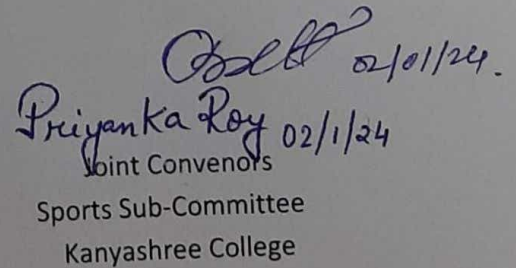 02/01/24.
Priyanka Roy 02/1/24
Joint Convenors
Sports Sub-Committee
Kanyashree College